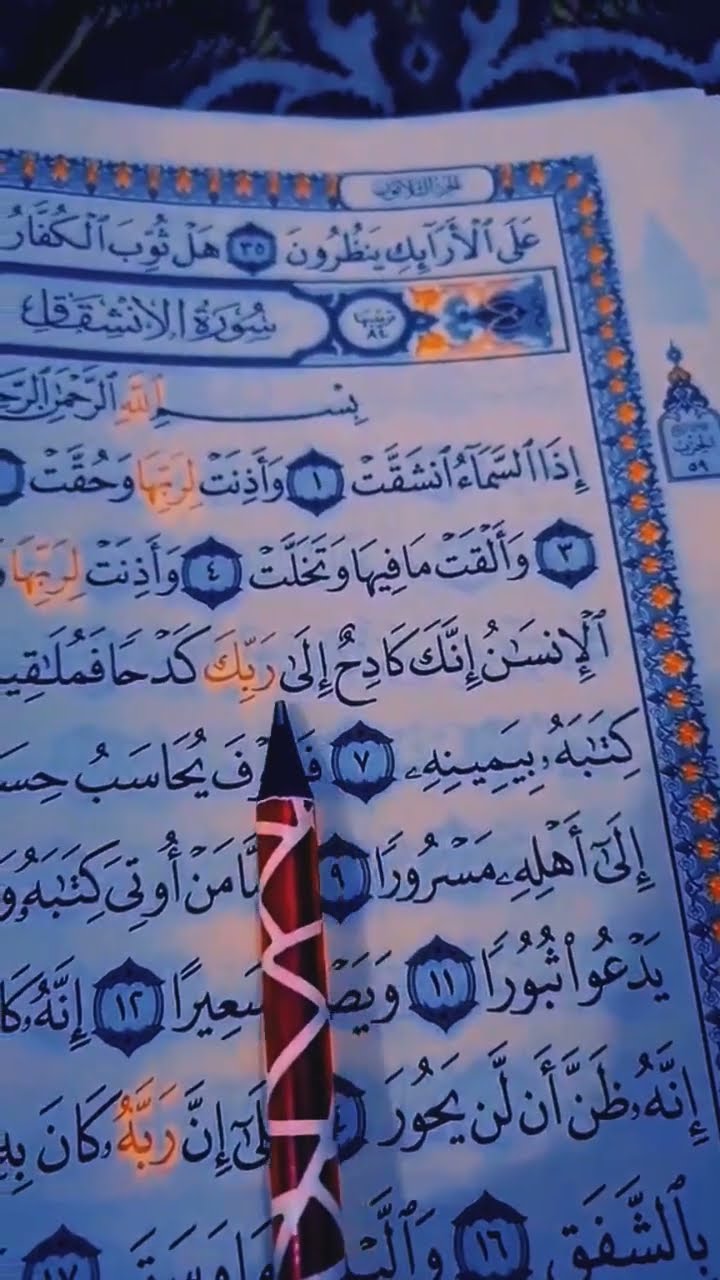 الجزء الثلاثون
عَلَى ٱلْأَرَآئِكِ يَنظُرُونَ ٣٥ هَلْ ثُوِّبَ ٱلْكُفَّارُ
سُورَةُ الِانْشِقَاقِ
ترتيبها ٨٤
بِسْمِ ٱللَّهِ ٱلرَّحْمَٰنِ
إِذَا ٱلسَّمَآءُ ٱنشَقَّتْ ١ وَأَذِنَتْ لِرَبِّهَا وَحُقَّتْ
الحزب ٥٩
٣ وَأَلْقَتْ مَا فِيهَا وَتَخَلَّتْ ٤ وَأَذِنَتْ لِرَبِّهَا
ٱلْإِنسَٰنُ إِنَّكَ كَادِحٌ إِلَىٰ رَبِّكَ كَدْحًا
كِتَٰبَهُۥ بِيَمِينِهِۦ ٧ يُحَاسَبُ
إِلَىٰٓ أَهْلِهِۦ مَسْرُورًا ٩ مَنْ أُوتِيَ كِتَٰبَهُۥ
يَدْعُوا۟ ثُبُورًا ١١ سَعِيرًا ١٢ إِنَّهُۥ
إِنَّهُۥ ظَنَّ أَن لَّن يَحُورَ إِنَّ رَبَّهُۥ كَانَ
بِٱلشَّفَقِ ١٦ ١٧